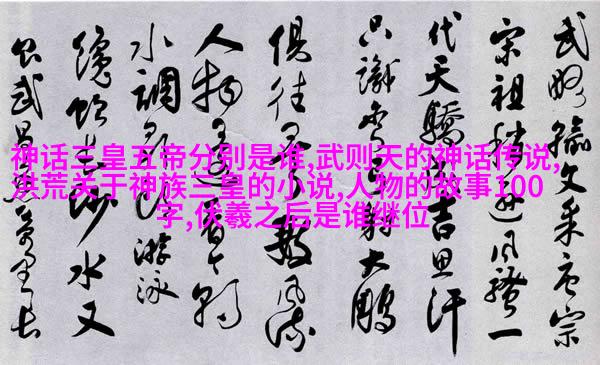 神话三皇五帝分别是谁,武则天的神话传说,
洪荒关于神族三皇的小说,人物的故事100
字,伏羲之后是谁继位
武略输文采唐宗
宋祖稍逊风骚一
代天骄成吉思汗
只識弯弓射大鵬
俱往矣数风流
人物还看今朝
水調歌头游泳
长沙水又
武昌万里长